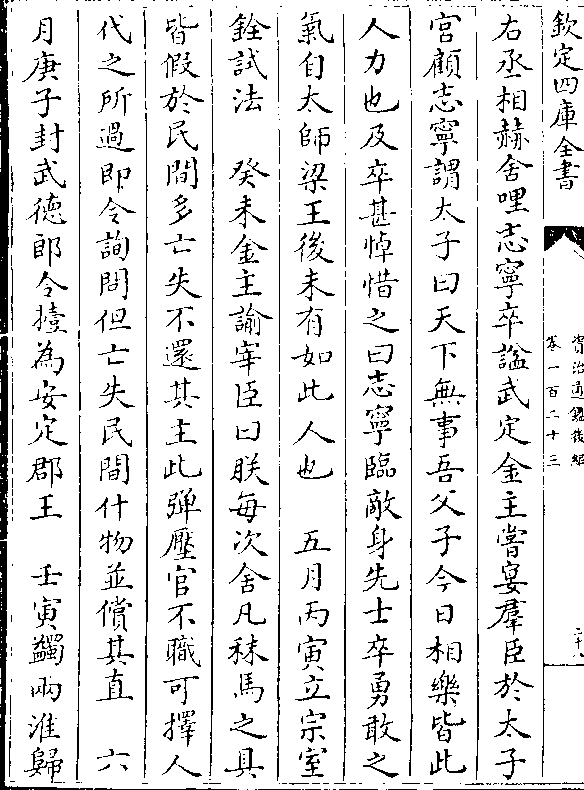 欽定四庫全書
資治通鑑後編
卷一百二十三
二十八
右丞相赫舍哩志寧卒諡武定金主嘗宴羣臣於太子
宮顧志寧謂太子曰天下無事吾父子今日相樂皆此
人力也及卒甚悼惜之曰志寧臨敵身先士卒勇敢之
氣自太師梁王後未有如此人也　五月丙寅立宗室
銓試法　癸未金主諭宰臣曰朕每次舍凡秣馬之具
皆假於民間多亡失不還其主此彈壓官不職可擇人
代之所過即令詢問但亡失民間什物並償其直　六
月庚子封武德郎令擡為安定郡王　壬寅蠲兩淮歸